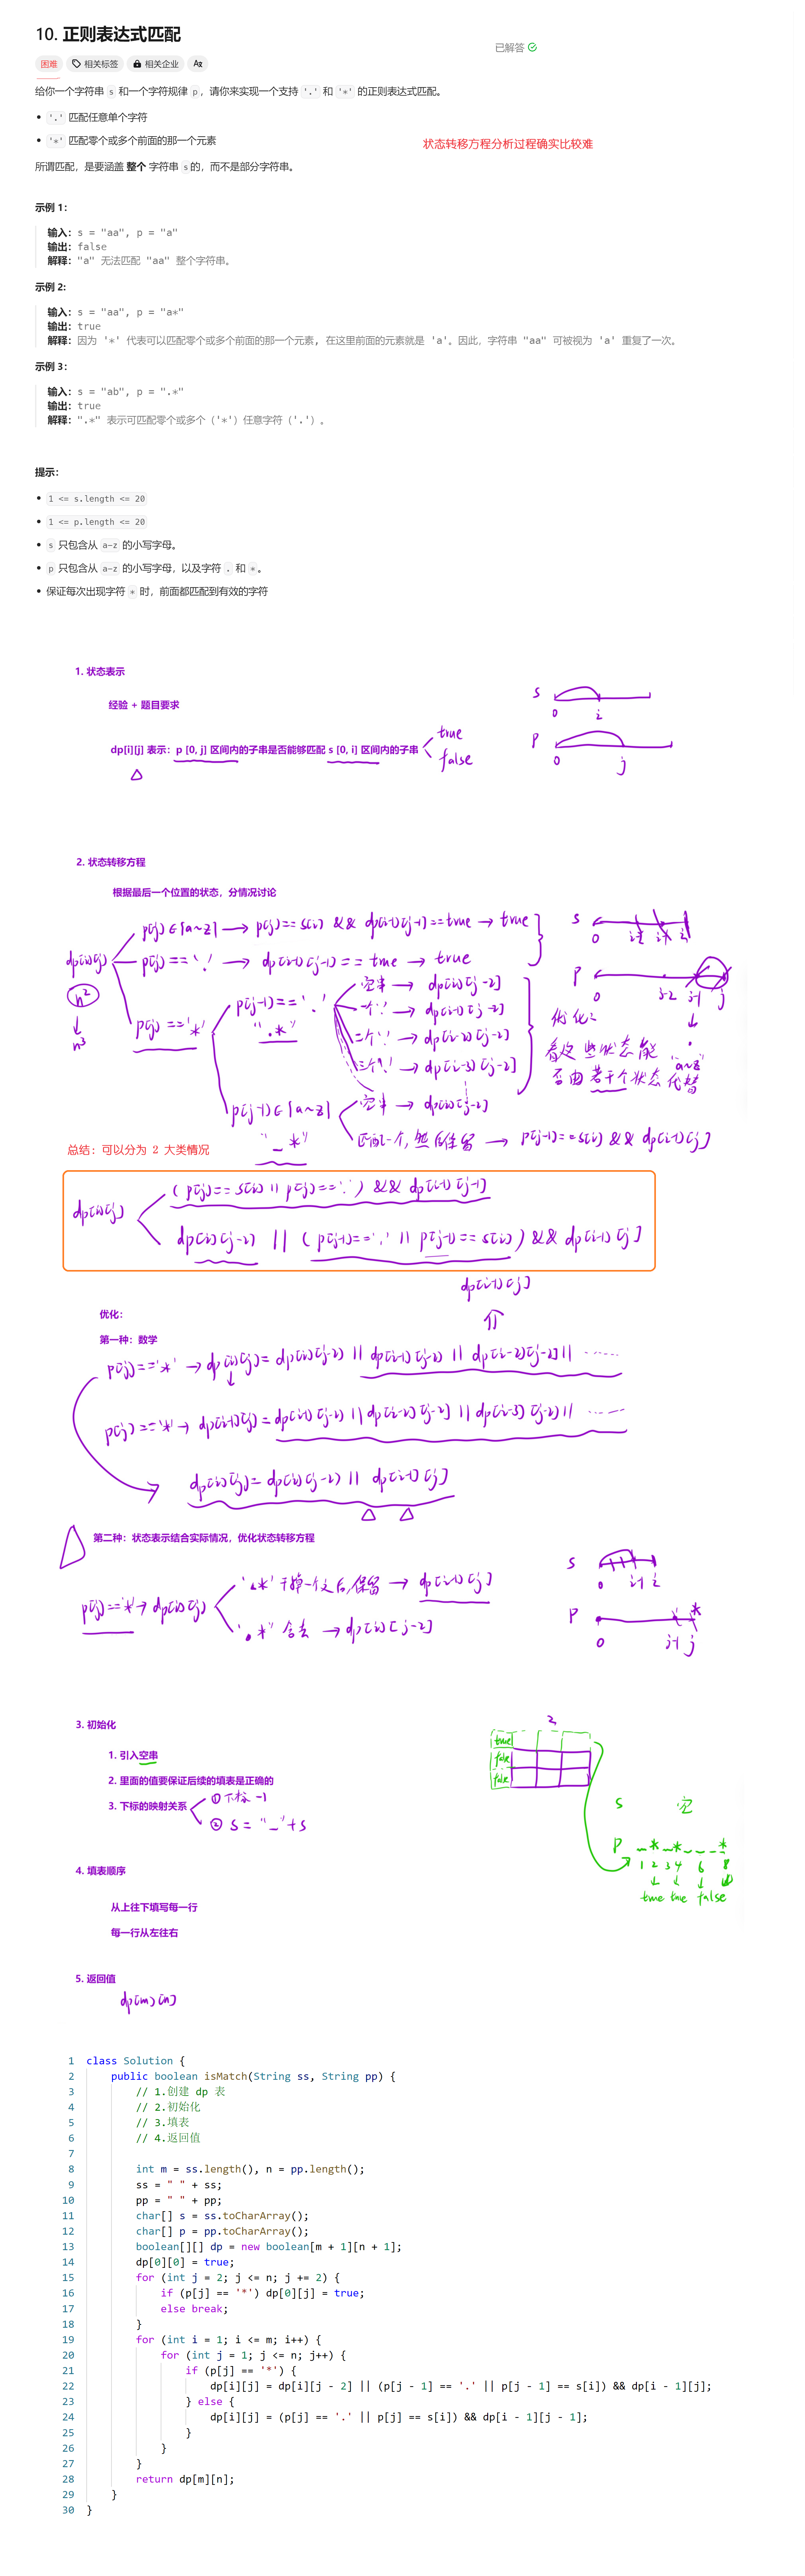 10. 正则表达式匹配
已解答
困难 相关标签 相关企业
给你一个字符串 s 和一个字符规律 p，请你来实现一个支持 '.' 和 '*' 的正则表达式匹配。
• '.' 匹配任意单个字符
• '*' 匹配零个或多个前面的那一个元素
状态转移方程分析过程确实比较难
所谓匹配，是要涵盖 整个 字符串 s 的，而不是部分字符串。
示例 1：
输入：s = "aa", p = "a"
输出：false
解释："a" 无法匹配 "aa" 整个字符串。
示例 2:
输入：s = "aa", p = "a*"
输出：true
解释：因为 '*' 代表可以匹配零个或多个前面的那一个元素, 在这里前面的元素就是 'a'。因此，字符串 "aa" 可被视为 'a' 重复了一次。
示例 3：
输入：s = "ab", p = ".*"
输出：true
解释：".*" 表示可匹配零个或多个（'*'）任意字符（'.'）。
提示：
• 1 <= s.length <= 20
• 1 <= p.length <= 20
• s 只包含从 a-z 的小写字母。
• p 只包含从 a-z 的小写字母，以及字符 . 和 *。
• 保证每次出现字符 * 时，前面都匹配到有效的字符
1. 状态表示
经验 + 题目要求
dp[i][j] 表示：p [0, j] 区间内的子串是否能够匹配 s [0, i] 区间内的子串
true
false
s
0 i
p
0 j
2. 状态转移方程
根据最后一个位置的状态，分情况讨论
dp[i][j]
n²
n³
p[j]∈[a~z] → p[j]==s[i] && dp[i-1][j-1]==true → true
p[j]=='.' → dp[i-1][j-1]==true → true
p[j]=='*'
p[j-1]=='.'
".*"
空串 → dp[i][j-2]
一个'.' → dp[i-1][j-2]
二个'.' → dp[i-2][j-2]
三个'.' → dp[i-3][j-2]
p[j-1]∈[a~z]
"_*"
空串 → dp[i][j-2]
匹配一个, 然后保留 → p[j-1]==s[i] && dp[i-1][j]
s
0 i-2 i-1 i
p
0 j-2 j-1 j
.
"a~z"
优化:
看这些状态能
否由若干个状态代替
总结：可以分为 2 大类情况
dp[i][j]
(p[j]==s[i] || p[j]=='.') && dp[i-1][j-1]
dp[i][j-2] || (p[j-1]=='.' || p[j-1]==s[i]) && dp[i-1][j]
dp[i-1][j]
优化：
第一种：数学
p[j]=='*' → dp[i][j]=dp[i][j-2] || dp[i-1][j-2] || dp[i-2][j-2] || ......
p[j]=='*' → dp[i-1][j]=dp[i-1][j-2] || dp[i-2][j-2] || dp[i-3][j-2] || ......
dp[i][j]=dp[i][j-2] || dp[i-1][j]
第二种：状态表示结合实际情况，优化状态转移方程
p[j]=='*' → dp[i][j]
'.*' 干掉一个之后,保留 → dp[i-1][j]
'.*' 舍去 → dp[i][j-2]
s
0 i-1 i
p
. *
0 j-1 j
3. 初始化
1. 引入空串
2. 里面的值要保证后续的填表是正确的
3. 下标的映射关系
① 下标 -1
② s = "_"+s
2
true
false
false
s 空
p _*_*___*
1 2 3 4 6 8
true true false
4. 填表顺序
从上往下填写每一行
每一行从左往右
5. 返回值
dp[m][n]
1 class Solution {
2 public boolean isMatch(String ss, String pp) {
3 // 1.创建 dp 表
4 // 2.初始化
5 // 3.填表
6 // 4.返回值
7
8 int m = ss.length(), n = pp.length();
9 ss = " " + ss;
10 pp = " " + pp;
11 char[] s = ss.toCharArray();
12 char[] p = pp.toCharArray();
13 boolean[][] dp = new boolean[m + 1][n + 1];
14 dp[0][0] = true;
15 for (int j = 2; j <= n; j += 2) {
16 if (p[j] == '*') dp[0][j] = true;
17 else break;
18 }
19 for (int i = 1; i <= m; i++) {
20 for (int j = 1; j <= n; j++) {
21 if (p[j] == '*') {
22 dp[i][j] = dp[i][j - 2] || (p[j - 1] == '.' || p[j - 1] == s[i]) && dp[i - 1][j];
23 } else {
24 dp[i][j] = (p[j] == '.' || p[j] == s[i]) && dp[i - 1][j - 1];
25 }
26 }
27 }
28 return dp[m][n];
29 }
30 }